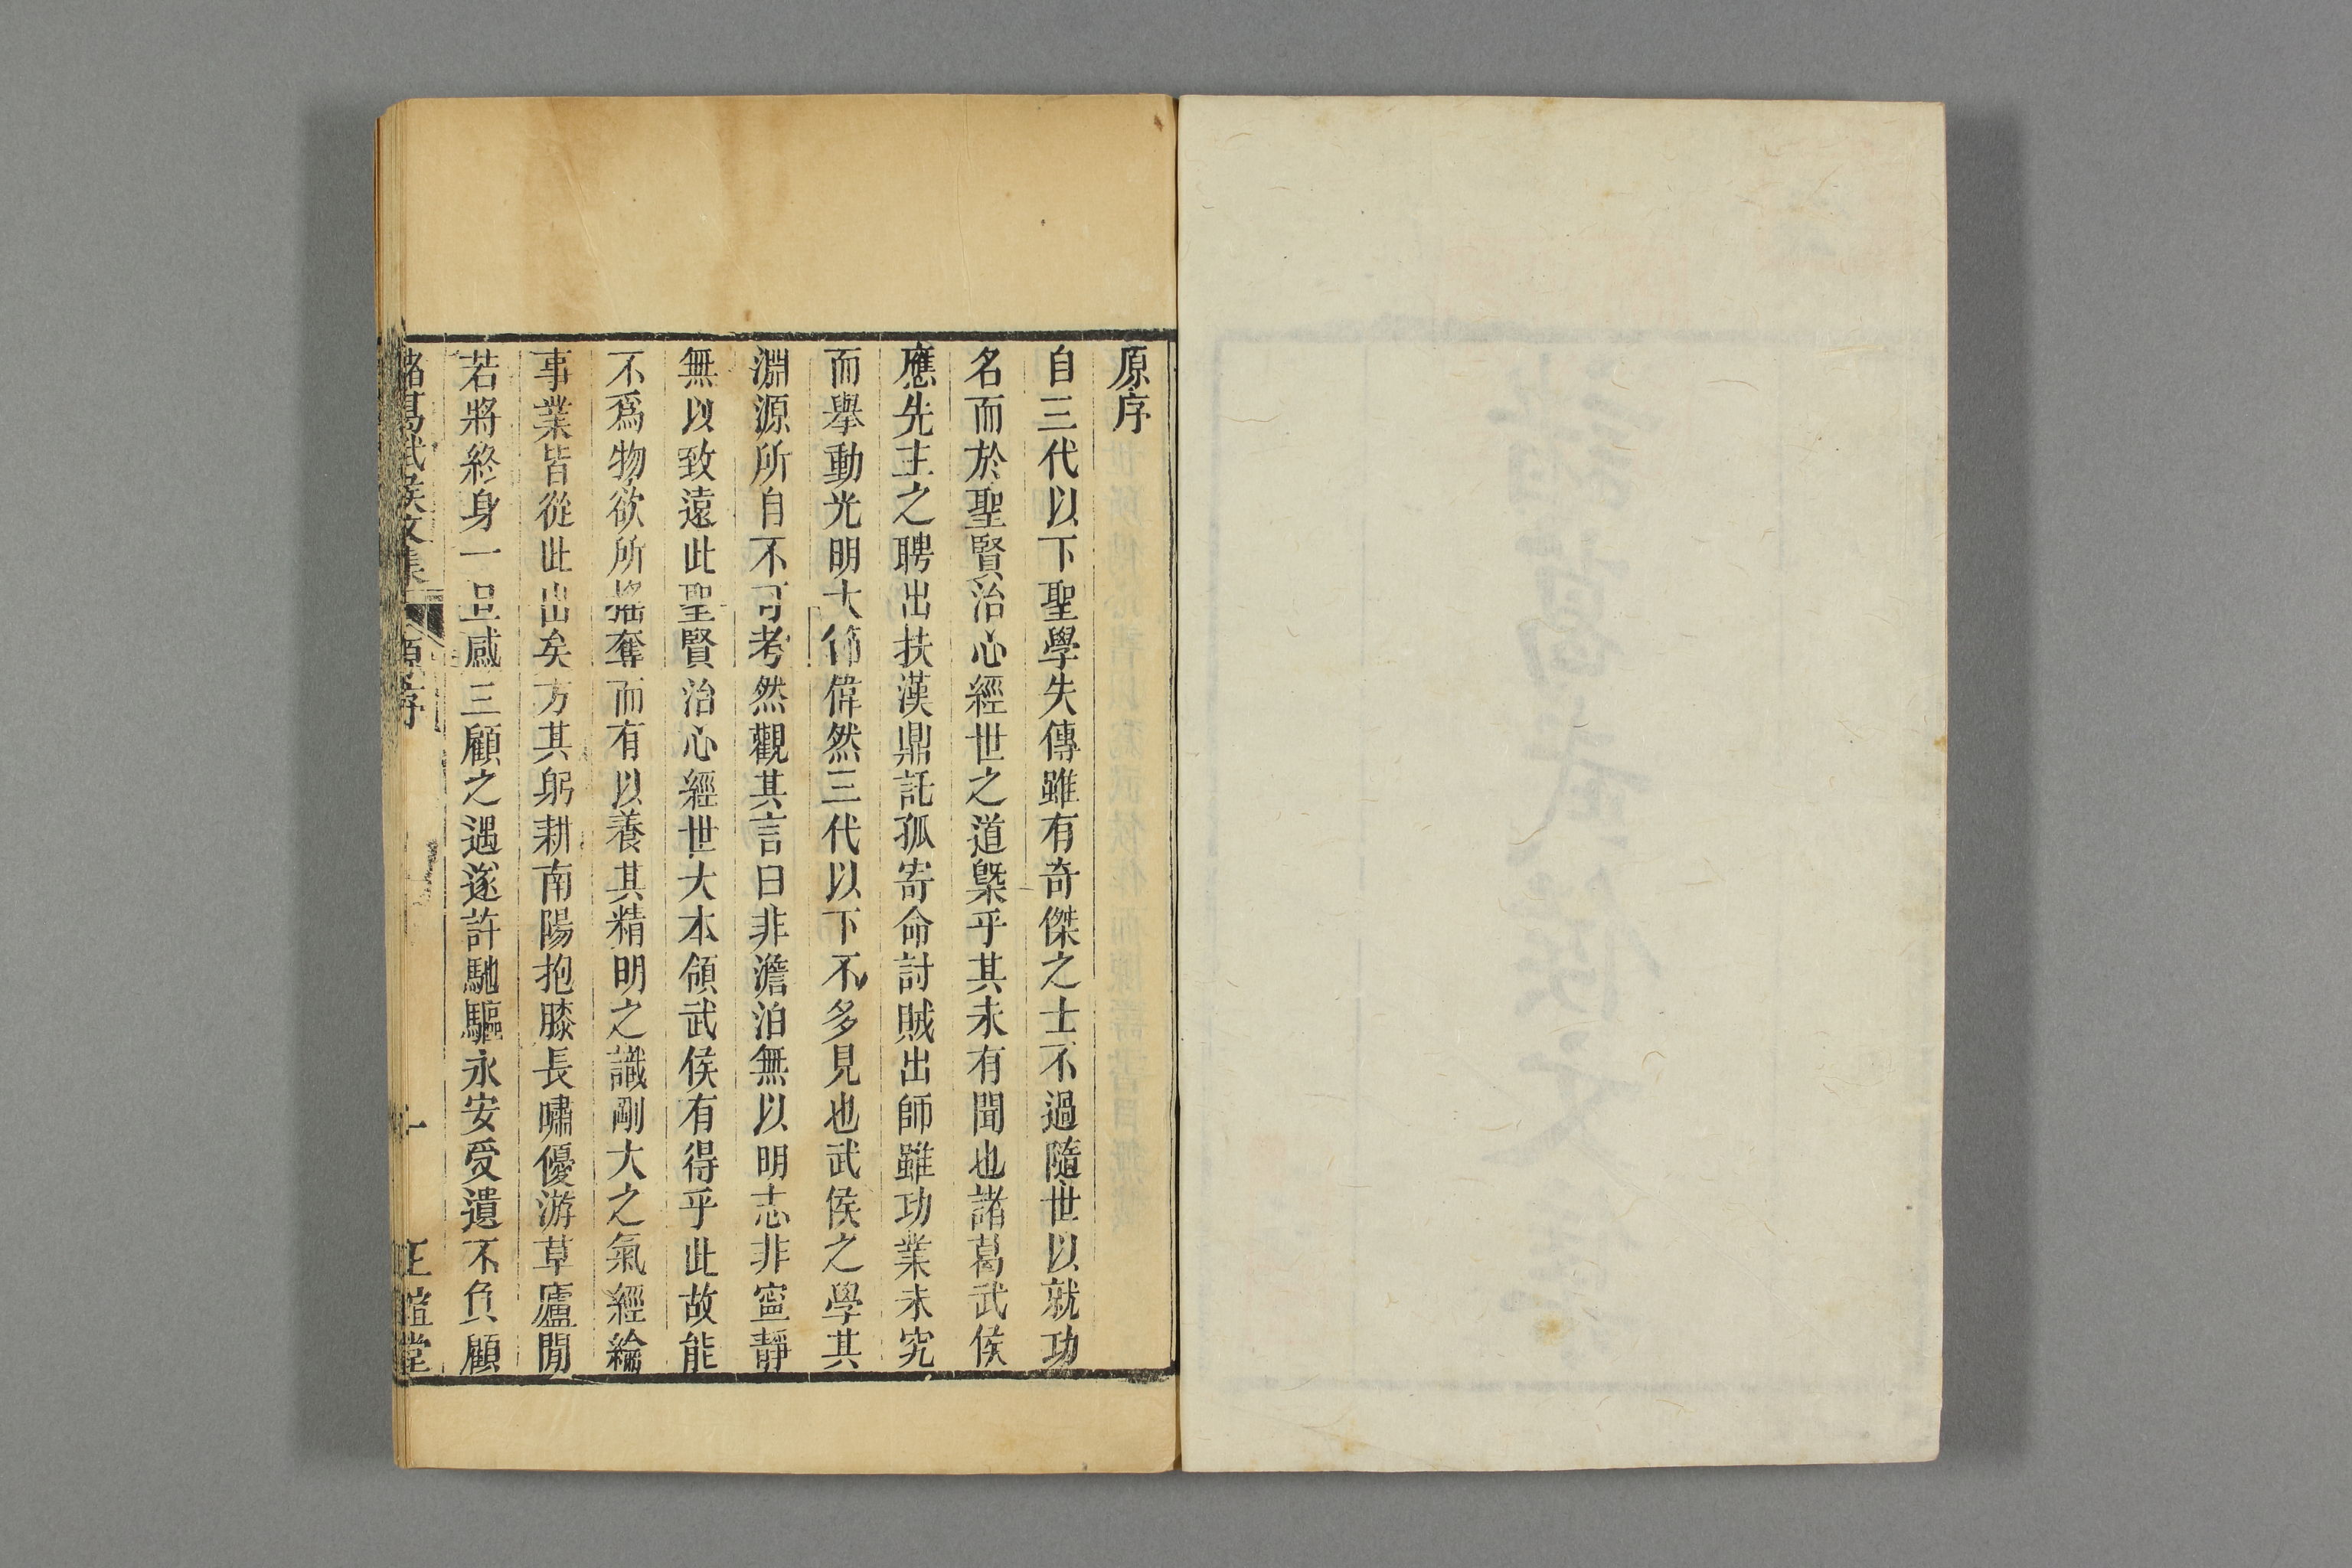 原序
自三代以下聖學失傳雖有奇傑之士不過隨世以就功
名而於聖賢治心經世之道槩乎其未有聞也諸葛武侯
應先主之聘出扶漢鼎託孤寄命討賊出師雖功業未究
而舉動光明大節偉然三代以下不多見也武侯之學其
淵源所自不可考然觀其言曰非澹泊無以明志非寍靜
無以致遠此聖賢治心經世大本領武侯有得乎此故能
不爲物欲所搖奪而有以養其精明之識剛大之氣經綸
事業皆從此出矣方其躬耕南陽抱膝長嘯優游草廬閒
若將終身一旦感三顧之遇遂許馳驅永安受遺不負顧
諸葛武侯文集 原序 一 正誼堂